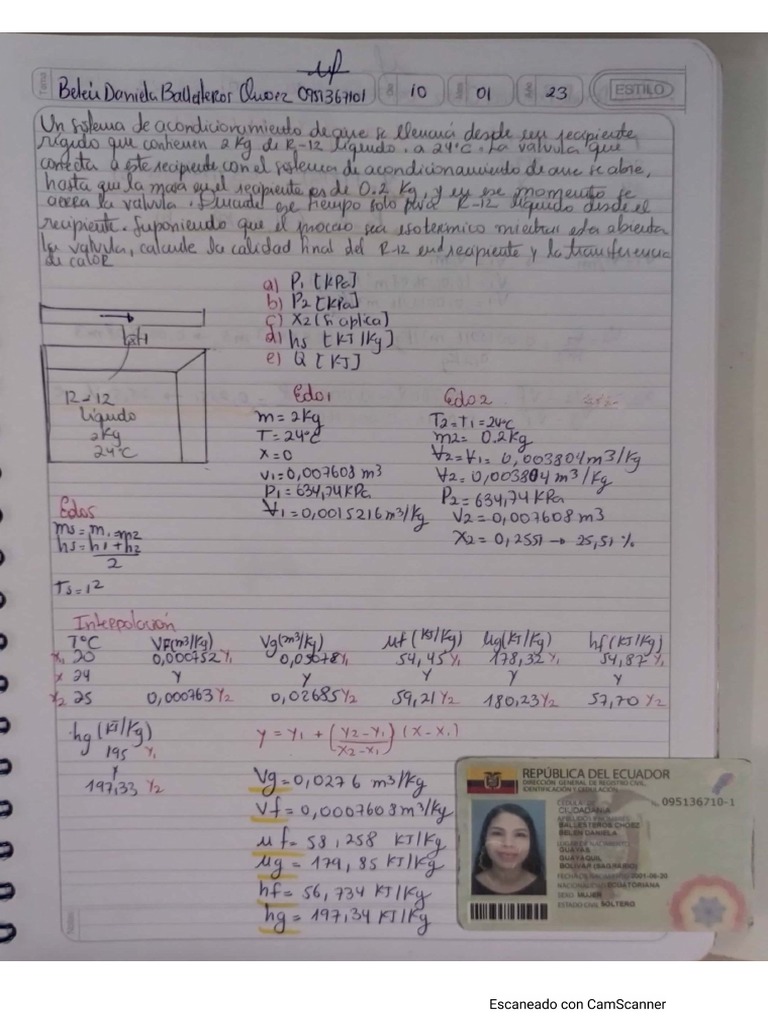 Tema
Belén Daniela Ballesteros Choez 0951367101
10
01
23
ESTILO
Un sistema de acondicionamiento de aire se llenará desde un recipiente
rígido que contienen 2 Kg de R-12 líquido. a 24°C. La valvula que
conecta a este recipiente con el sistema de acondicionamiento de aire se abre,
hasta que la masa en el recipiente es de 0.2 Kg, y en ese momento se
cierra la valvula. Durante ese tiempo solo pasa R-12 líquido desde el
recipiente. Suponiendo que el proceso sea isotermico mientras esta abierta
la valvula, calcule la calidad final del R-12 en el recipiente y la transferencia
de calor
a) P1 [KPa]
b) P2 [KPa]
c) X2 (si aplica)
d) hs [KJ/Kg]
e) Q [KJ]
R-12
líquido
2Kg
24°C
Edo1
m = 2Kg
T = 24°C
x = 0
V1 = 0,007608 m3
P1 = 634,74 KPa
V1 = 0,0015216 m3/Kg
Edo2
T2 = T1 = 24°C
m2 = 0.2Kg
V2 = V1 = 0,003804 m3/Kg
V2 = 0,003804 m3/Kg
P2 = 634,74 KPa
V2 = 0,007608 m3
X2 = 0,2551 → 25,51 %
Edos
ms = m1 - m2
hs = h1 + h2
2
Ts = 1²
Interpolación
T°C Vf(m3/Kg) Vg(m3/Kg) uf (KJ/Kg) ug(KJ/Kg) hf (KJ/Kg)
x1 20 0,000752 y1 0,03078 y1 54,45 y1 178,32 y1 54,87 y1
x 24 y y y y y
x2 25 0,000763 y2 0,02685 y2 59,21 y2 180,23 y2 57,70 y2
hg (KJ/Kg)
195 y1
y
197,33 y2
y = y1 + (y2 - y1 / x2 - x1) (x - x1)
Vg = 0,0276 m3/Kg
Vf = 0,0007608 m3/Kg
uf = 58,258 KJ/Kg
ug = 179,85 KJ/Kg
hf = 56,734 KJ/Kg
hg = 197,34 KJ/Kg
REPÚBLICA DEL ECUADOR
DIRECCIÓN GENERAL DE REGISTRO CIVIL,
IDENTIFICACIÓN Y CEDULACIÓN
CÉDULA DE
CIUDADANÍA
095136710-1
APELLIDOS Y NOMBRES
BALLESTEROS CHOEZ
BELEN DANIELA
LUGAR DE NACIMIENTO
GUAYAS
GUAYAQUIL
BOLIVAR (SAGRARIO)
FECHA DE NACIMIENTO 2001-06-20
NACIONALIDAD ECUATORIANA
SEXO MUJER
ESTADO CIVIL SOLTERO
Escaneado con CamScanner